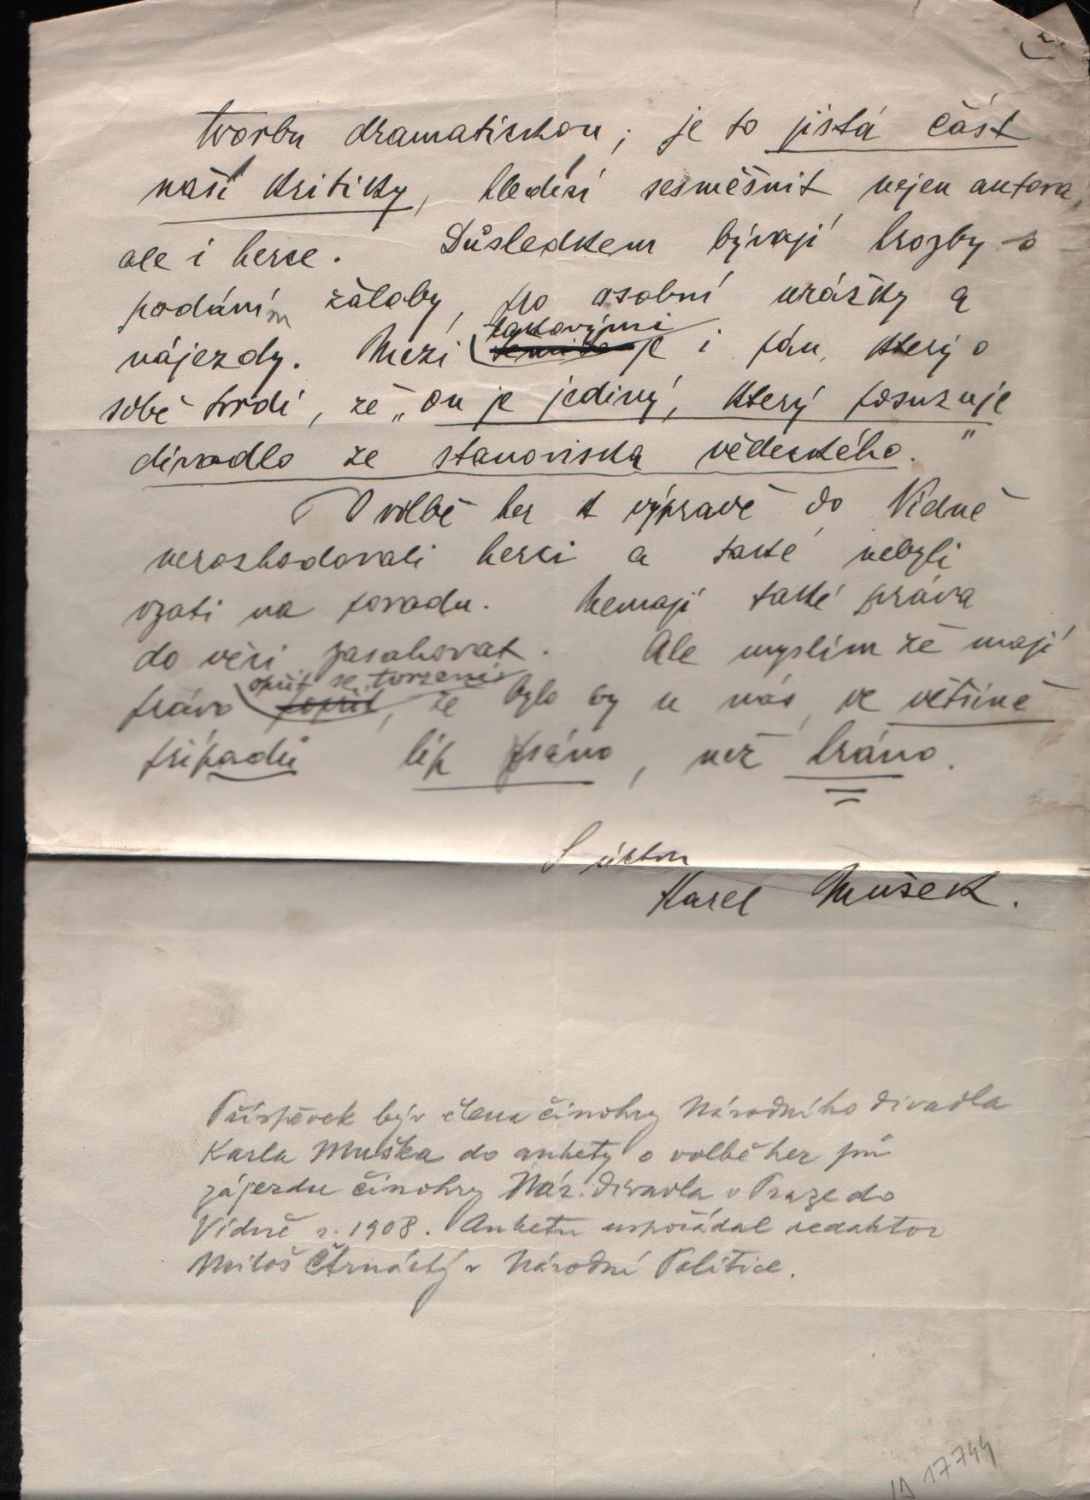 tvorbu dramatickou; je to jistá část
naší kritiky, hledící sesměšnit nejen autora,
ale i herce. Důsledkem bývají hrozby
podáním žaloby, pro osobní urážky a
nájezdy. Mezi takovými je i pán, který o
sobě tvrdí, že „on je jediný, který posuzuje
divadlo ze stanoviska vědeckého."
O volbě her k výpravě do Vídně
nerozhodovali herci a také nebyli
vzati na poradu. Nemají také práva
do věci zasahovat. Ale myslím že mají
právo opřít se tvrzení, že bylo by u nás, ve většině
případů líp psáno, než hráno.
S úctou
Karel Mušek.
Příspěvek býv. člena činohry Národního divadla
Karla Muška do ankety o volbě her při
zájezdu činohry Nár. divadla v Praze do
Vídně r. 1908. Anketu uspořádal redaktor
Miloš Čtrnáctý v Národní Politice.
17744